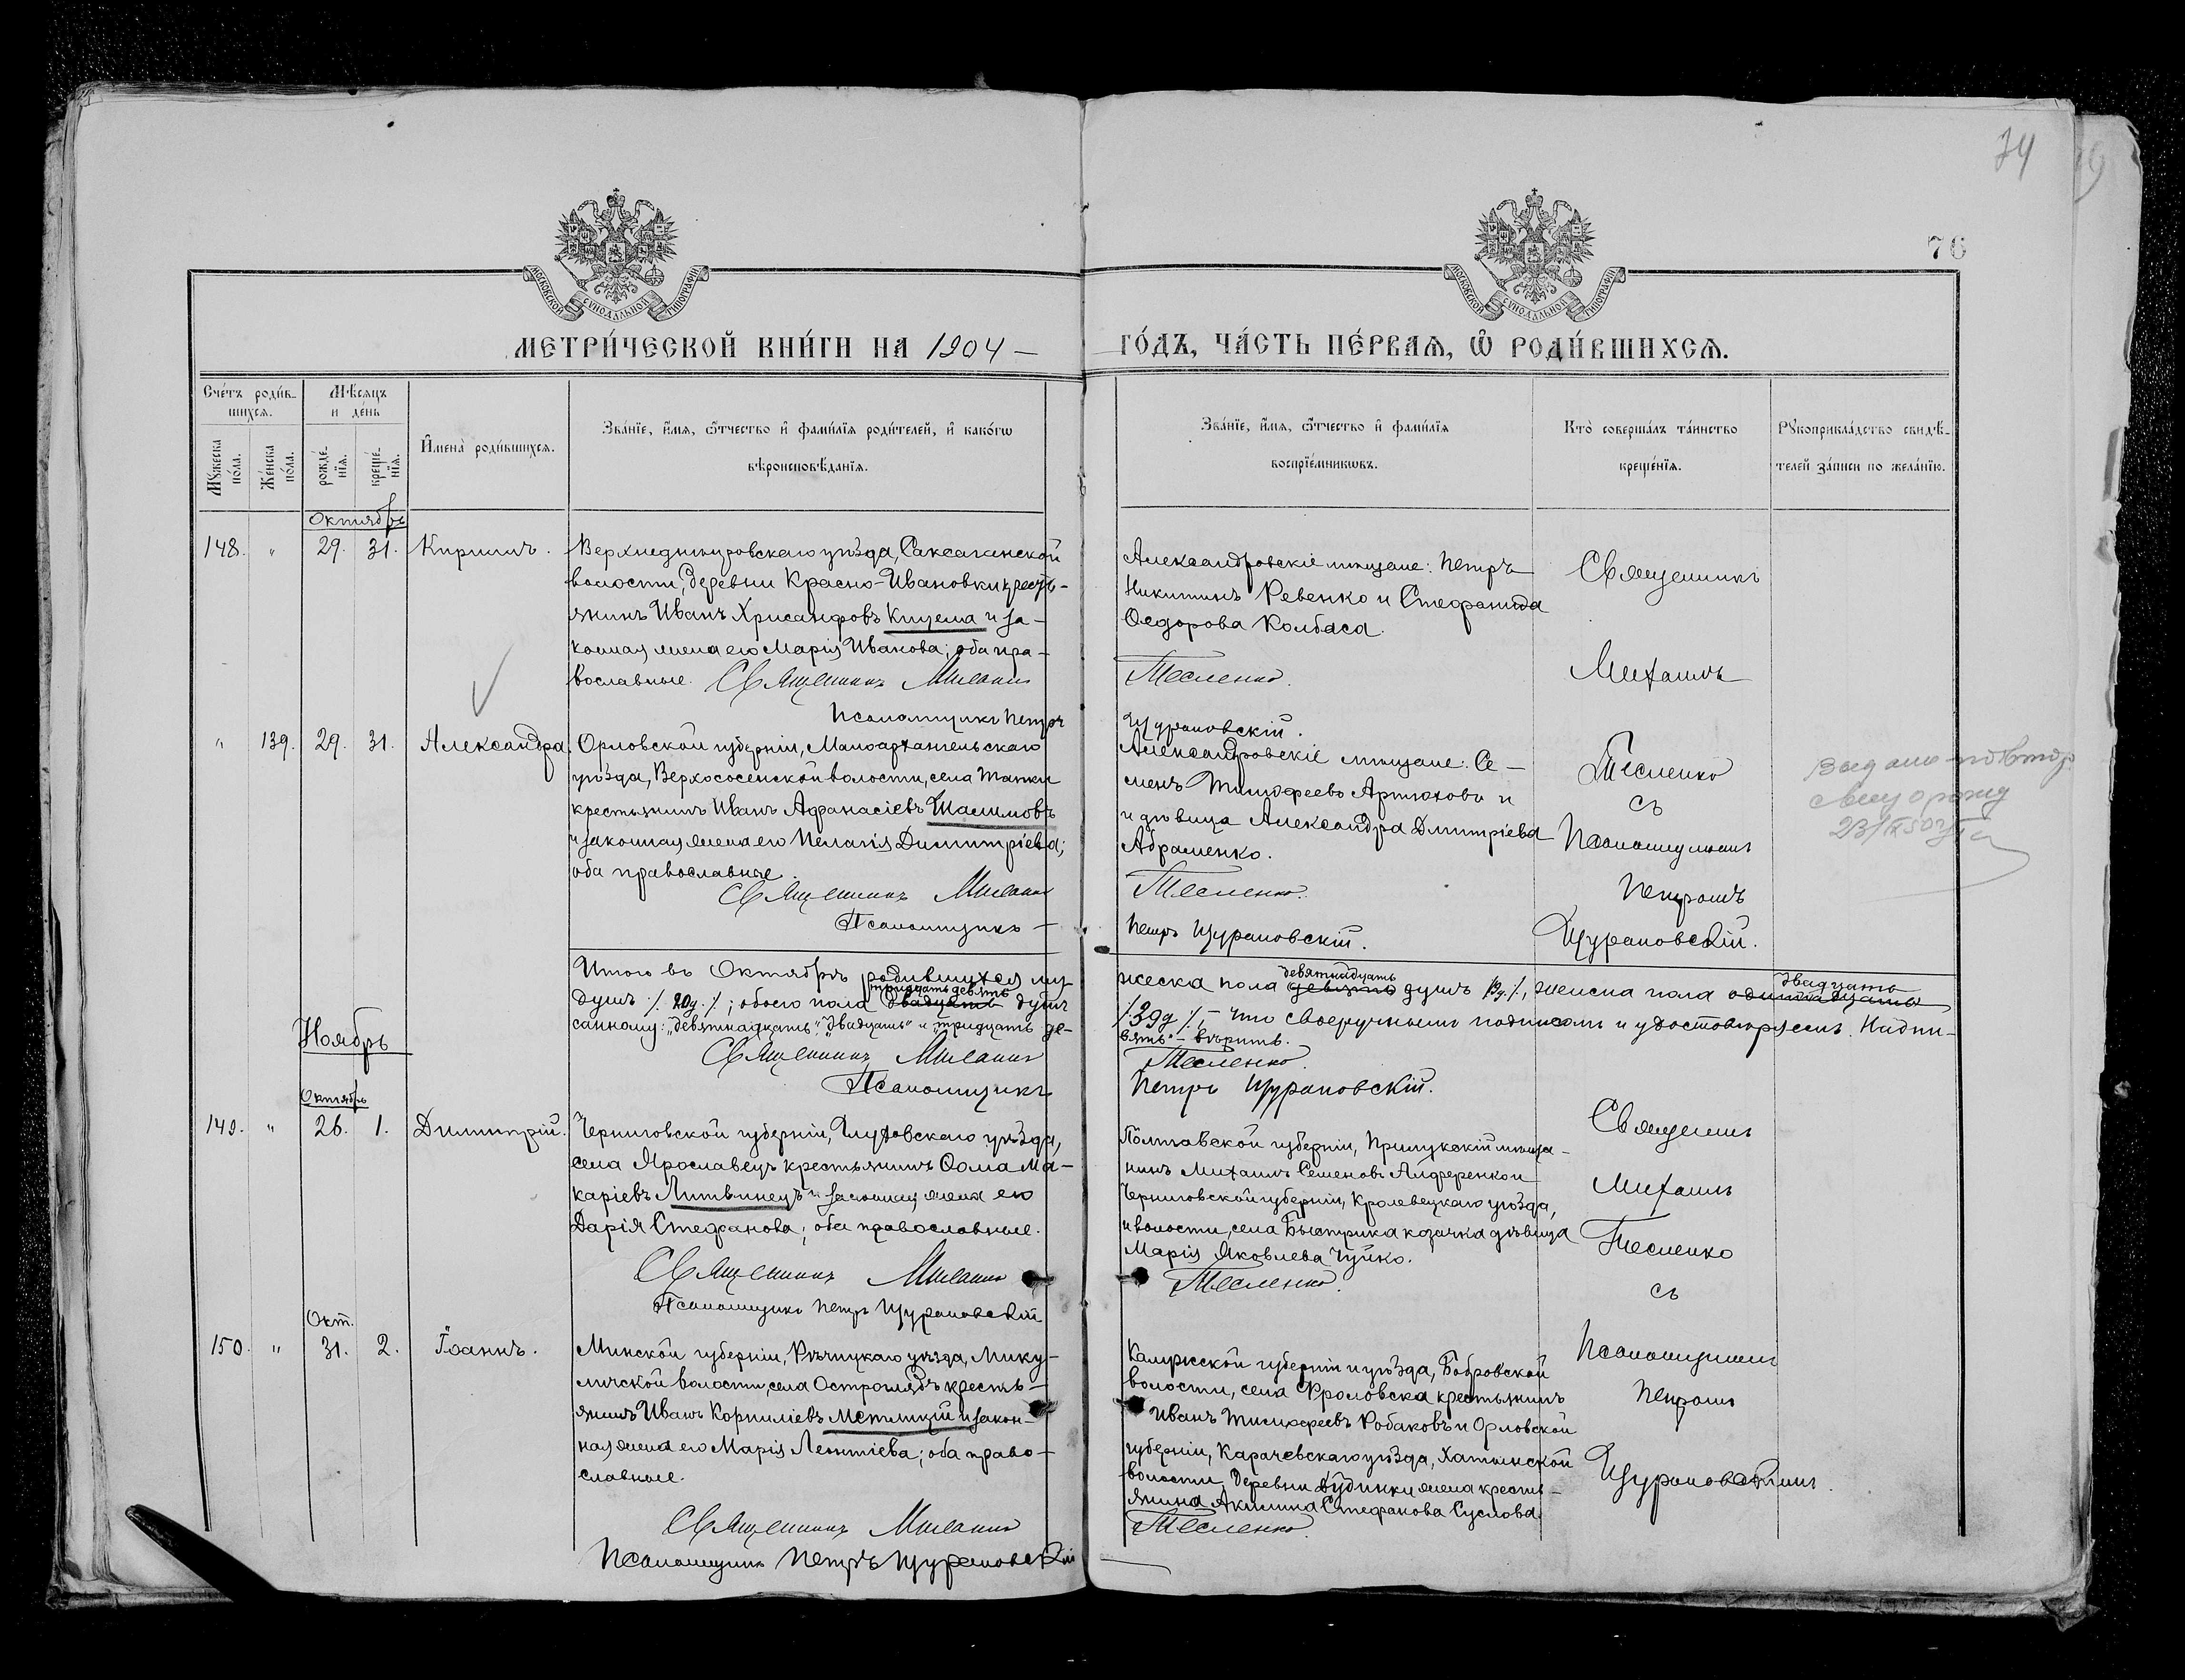 74
76
МОСКОВСКОЙ СѴНОДАЛЬНОЙ ТИПОГРАФІИ
МОСКОВСКОЙ СѴНОДАЛЬНОЙ ТИПОГРАФІИ
МЕТРИ́ЧЕСКОЙ КНИ́ГИ НА 1904 —
ГО́ДЪ, ЧА́СТЬ ПЕ́РВАѦ, Ѽ РОДИ́ВШИХСѦ.
Сче́тъ роди́в-
шихсѧ.
Мѣ́сѧцъ
и де́нь
Му́жеска по́ла.
Же́нска по́ла.
рожде́нїѧ.
креще́нїѧ.
И҆мена̀ роди́вшихсѧ.
Зва́нїе, и҆́мѧ, ѻ҆́тчество и҆ фами́лїѧ роди́телей, и҆ како́гѡ
вѣроисповѣ́данїѧ.
Зва́нїе, и҆́мѧ, ѻ҆́тчество и҆ фами́лїѧ
воспрїе́мникѡвъ.
Кто̀ соверша́лъ та́инство
креще́нїѧ.
Рꙋкоприкла́дство свидѣ́-
телей за́писи по жела́нїю.
Октябрь
148. " 29. 31. Кириллъ.
Верхнеднѣпровскаго уѣзда, Саксаганской
волости, деревни Красно-Ивановки кресть-
янинъ Иванъ Хрисанфовъ Кицема и за-
конная жена его Марія Иванова; оба пра-
вославные. Священникъ Михаилъ
Псаломщикъ Петръ
Александровскіе мѣщане: Петръ
Никитинъ Ревенко и Стефанида
Ѳедорова Колбаса.
Тесленко.
Щурановскій.
Священникъ
Михаилъ
Тесленко
съ
Псаломщикомъ
Петромъ
Щурановскій.
" 139. 29. 31. Александра.
Орловской губерніи, Малоархангельскаго
уѣзда, Верхососенской волости, села
крестьянинъ Иванъ Афанасіевъ Шалимовъ
и законная жена его Пелагія Димитріева;
оба православные.
Священникъ Михаилъ
Псаломщикъ —
Александровскіе мѣщане: Се-
менъ Тимофеевъ Артюховъ и
и дѣвица Александра Димитріева
Абраменко.
Тесленко.
Петръ Щурановскій.
Итого въ Октябрѣ родившихся му
жеска пола девятнадцать девять душъ 19д./, женска пола двадцать одиннадцать
душъ ./. 20д. ./.; обоего пола тридцать девять двадцать душъ
/.39д./. — что своеручнымъ подписомъ и удостовѣряемъ. Надпи-
санному: "девятнадцать", "двадцать" и "тридцать де-
вять" — вѣрить.
Священникъ Михаилъ
Тесленко.
Псаломщикъ
Петръ Щурановскій.
Ноябрь
Октябрь
149. " 26. 1. Димитрій.
Черниговской губерніи, Глуховскаго уѣзда,
села Ярославецъ крестьянинъ Ѳома Ма-
каріевъ Литвинецъ и законная жена его
Дарія Стефанова; оба православные.
Священникъ Михаилъ
Псаломщикъ Петръ Щурановскій
Полтавской губерніи, Прилукскій мѣща-
нинъ Михаилъ Семеновъ Алференко и
Черниговской губерніи, Кролевецкаго уѣзда,
и волости, села Быстрика козачка дѣвица
Марія Яковлева Чуйко.
Тесленко.
Священникъ
Михаилъ
Тесленко
съ
Псаломщикомъ
Петромъ
Щурановскимъ.
Окт.
150. " 31. 2. Іоаннъ.
Минской губерніи, Рѣчицкаго уѣзда, Мику-
личской волости, села Остроглядъ кресть-
янинъ Иванъ Корниліевъ Метлицкій и закон-
ная жена его Марія Леонтіева; оба право-
славные.
Священникъ Михаилъ
Псаломщикъ Петръ Щурановскій
Калужской губерніи и уѣзда, Бобровской
волости, села Фроловска крестьянинъ
Иванъ Тимофеевъ Робаковъ и Орловской
губерніи, Карачевскаго уѣзда, Хатынской
волости, деревни Дудинки жена кресть-
янина Акилина Стефанова Суслова.
Тесленко.